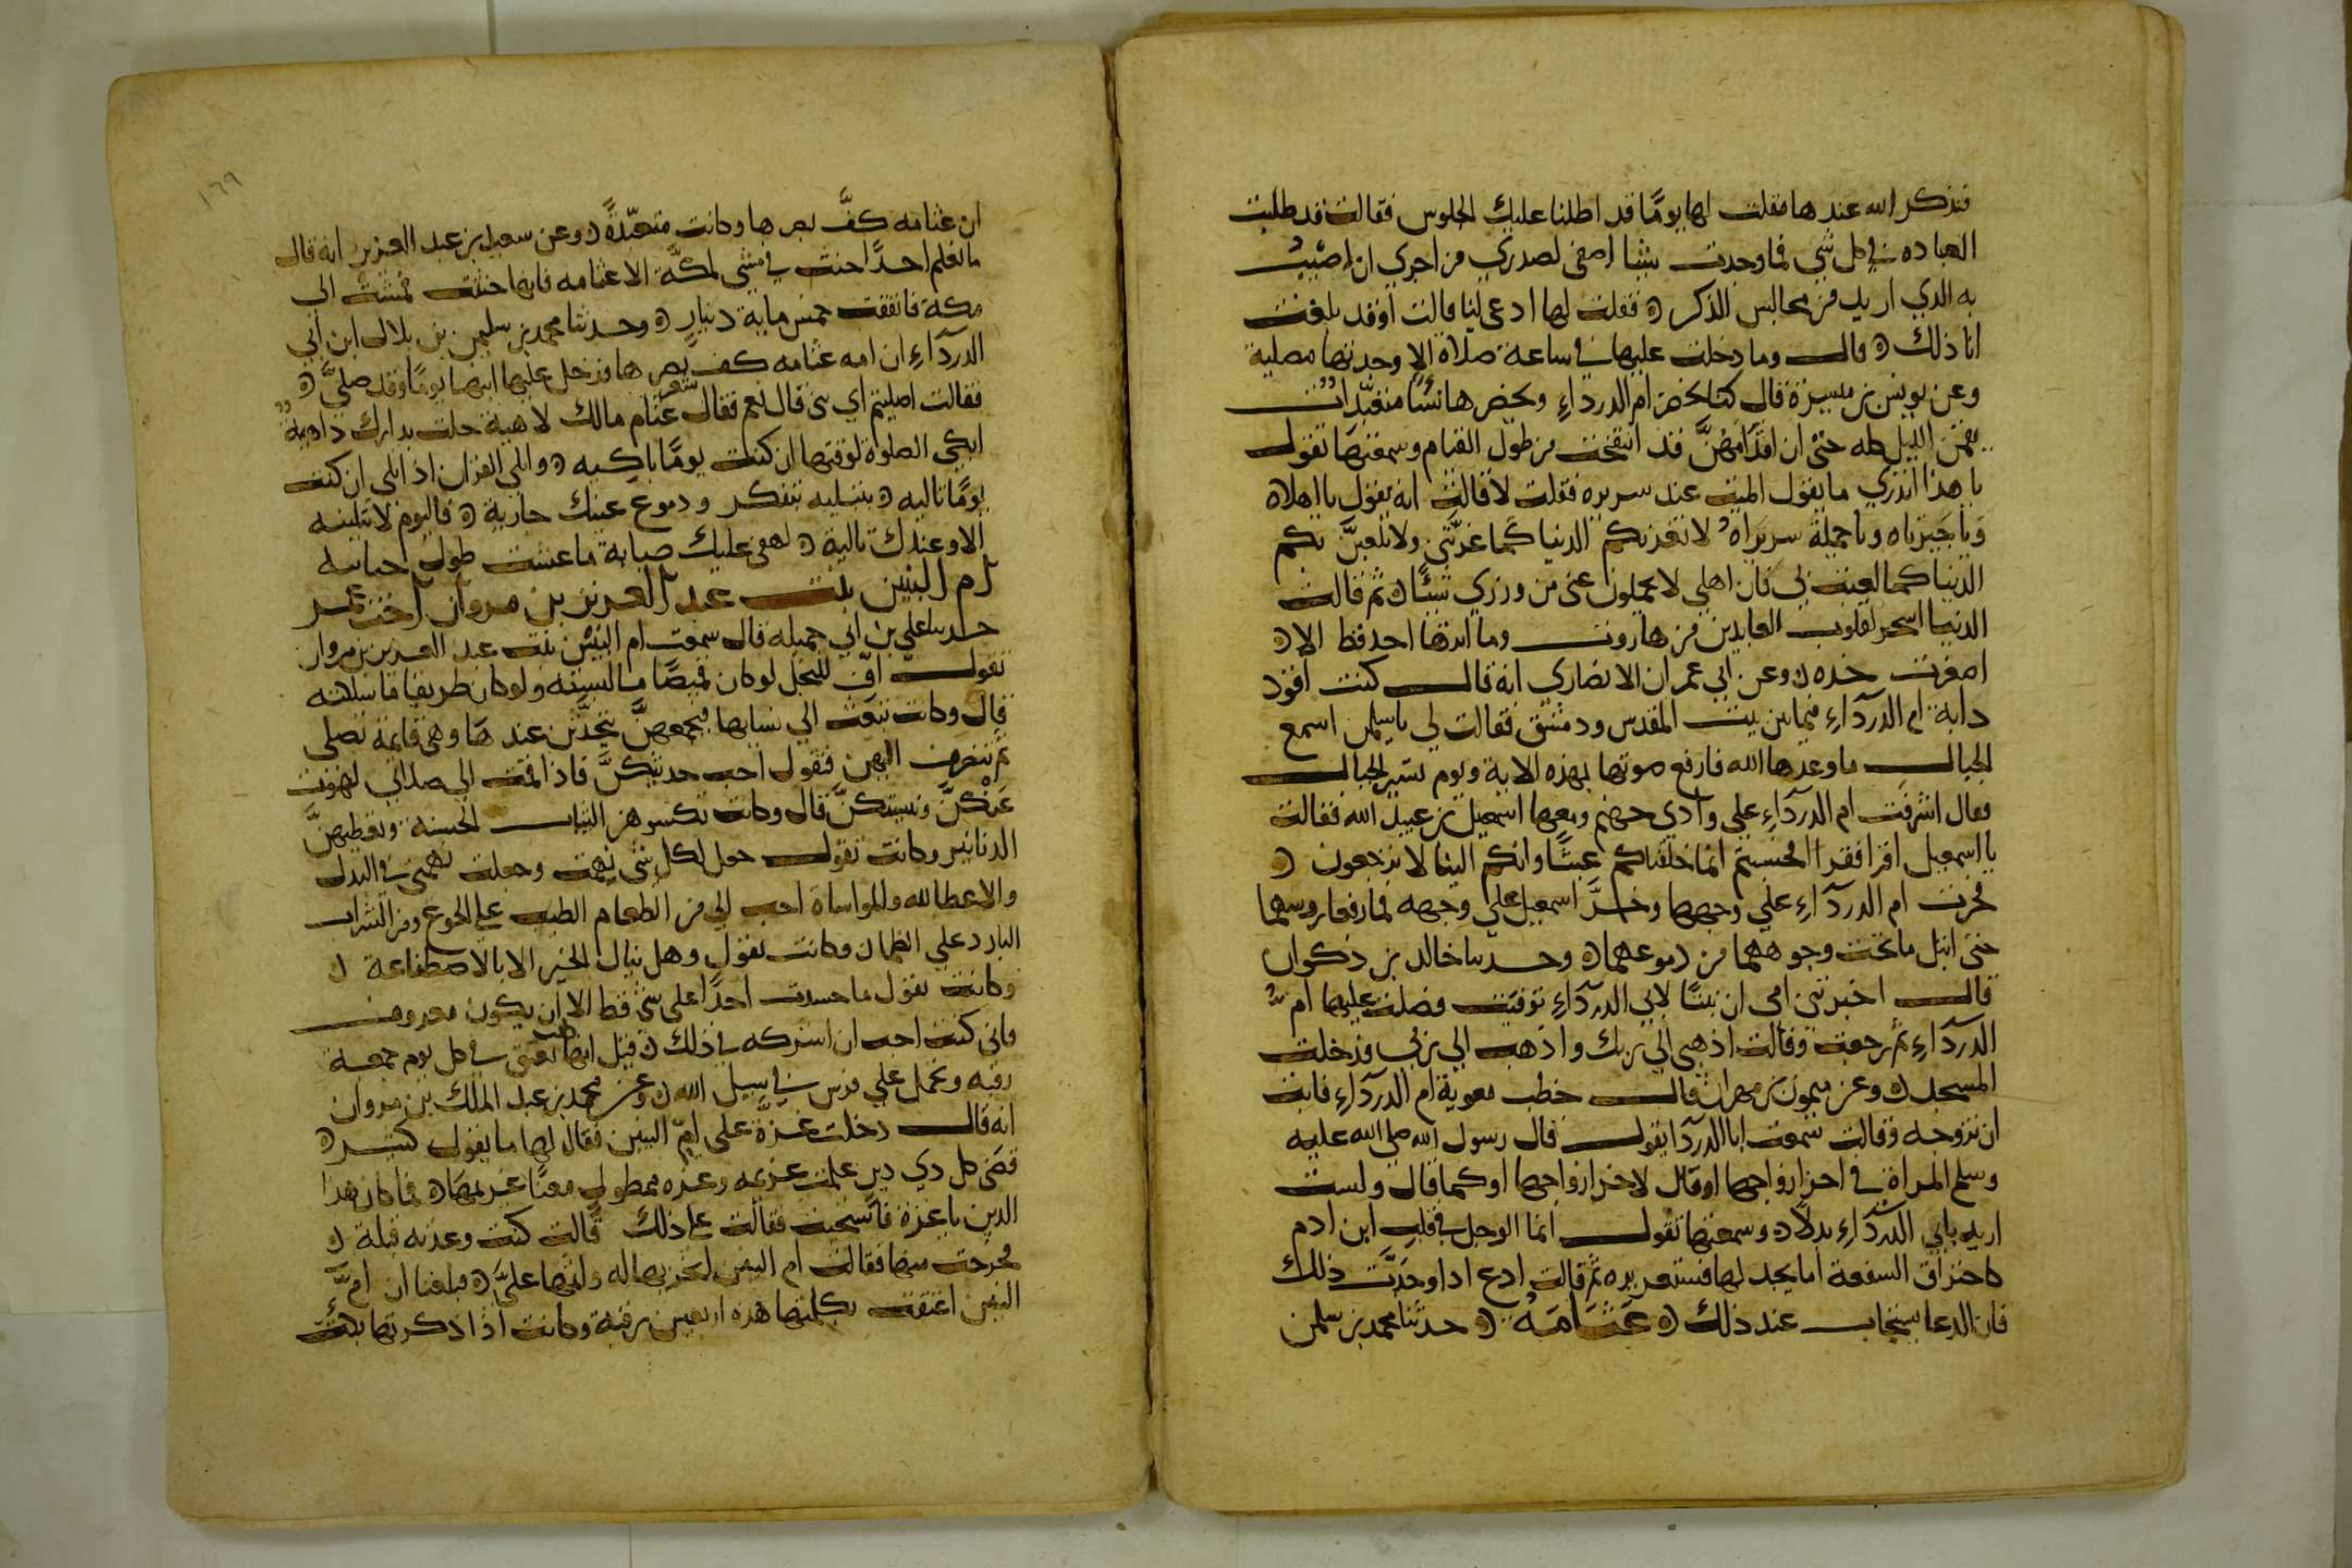 فنذكر الله عندها فقلت لها يومًا قد اطلنا عليك الجلوس فقالت قد طلبت
العبادة في كل شي فما وجدت شيئا اصفى لصدري من احري ان اصيب
به الذي اريد من مجالس الذكر ه فقلت لها ادعي لنا قالت اوقد بلغت
انا ذلك ه قال وما دخلت عليها في ساعة صلاة الا وجدتها مصلية
وعن يونس بن ميسرة قال كنا نحضر ام الدرداء وتحضرها نساء متعبدات
يقمن الليل كله حتى ان اقدامهن قد انتفخت من طول القيام وسمعتها تقول
يا هذا اتدري ما يقول الميت عند سريره فقلت لا قالت انه يقول يا اهلاه
ويا جيرناه ويا حملة سريراه لا تغرنكم الدنيا كما غرتني ولا تلعبن بكم
الدنيا كما لعبت بي فان اهلي لا يحملون عني من وزري شيئًا ه ثم قالت
الدنيا اسحر لقلوب العابدين من هاروت وما اثرها احد قط الا ه
اصرعت خده ه وعن ابي عمران الانصاري انه قال كنت اقود
دابة ام الدرداء فيما بين بيت المقدس ودمشق فقالت لي يا سليمن اسمع
الجبال ما وعدها الله فارفع صوتها بهذه الاية ويوم نسير الجبال
فقال اشرفت ام الدرداء على وادي جهنم ومعها اسمعيل بن عبيد الله فقالت
يا اسمعيل اقرا فقرا افحسبتم انما خلقناكم عبثًا وانكم الينا لا ترجعون ه
فخرت ام الدرداء على وجهها وخرَّ اسمعيل على وجهه فما رفعا روسهما
حتى ابتل ما تحت وجوههما من دموعهما ه وحدثنا خالد بن ذكوان
قال اخبرتني امي ان بنتًا لابي الدرداء توفيت فصلت عليها ام
الدرداء ثم رجعت وقالت اذهبي الى ربك واذهب الى ربي فدخلت
المسجد ه وعن ميمون بن مهران قال خطب معوية ام الدرداء فابت
ان تتزوجه وقالت سمعت ابا الدردا يقول قال رسول الله صلى الله عليه
وسلم المراة في اخر ازواجها او قال لاخر ازواجها او كما قال ولست
اريد بابي الدرداء بدلا ه وسمعتها تقول انما الوجل في قلب ابن ادم
كاحتراق السعفة اما يجد لها قشعريرة ثم قالت ادع اذا وجدت ذلك
فان الدعا يستجاب عند ذلك ه عَثَّامَة ه حدثنا محمد بن سليمن
١٦٩
ان عثامه كفَّ بصرها وكانت متعبّدةً ه وعن سعيد بن عبد العزيز انه قال
ما نعلم احدًا حنث في مشي لمكة الا عثامه فانها حنثت فمشت الى
مكة فانفقت خمس ماية دينار ه وحدثنا محمد بن سليمن بن بلال ابن ابي
الدرداء ان امه عثامه كف بصرها فدخل عليها ابنها يومًا وقد صلّى ه
فقالت اصليتم اي بني قال نعم فقال شعر عثام مالك لاهية حلت بدارك داهية
ابكي الصلوة لوقتها ان كنت يومًا باكيه ه وابكي القران اذا تلي ان كنت
يومًا تاليه ه تتليه بتفكر ودموع عينك جارية ه فاليوم لا تتلينه
الا وعندك تالية ه لهفي عليك صبابة ما عشت طول حياتيه
ام البنين بنت عبد العزيز بن مروان اخت عمر
حدثنا علي بن ابي جميلة قال سمعت ام البنين بنت عبد العزيز بن مروان
تقول اف للبخل لو كان قميصًا ما لبسته ولو كان طريقا ما سلكته
قال وكانت تبعث الى نسايها فتجمعهنَّ يتحدثن عندها وهي قايمة تصلي
ثم تنصرف اليهن فتقول احب حديثكنَّ فاذا قمت الى صلاتي لهوت
عنكنَّ ونسيتكنَّ قال وكانت تكسوهن الثياب الحسنه وتعطيهنَّ
الدنانير وكانت تقول جعل لكل شي نهمة وجعلت نهمتي في البذل
والاعطا لله والمواساة احب الي من الطعام الطيب على الجوع ومن الشراب
البارد على الظمان وكانت تقول وهل ينال الخير الا بالاصطناعة ه
وكانت تقول ما حسدت احدًا على شي قط الا ان يكون معروف
فاني كنت احب ان اشركه في ذلك ه قيل انها كانت تعتق في كل يوم جمعة
رقبه وتحمل على فرس في سبيل الله ه وعن محمد بن عبد الملك بن مروان
انه قال دخلت عزّة على امّ البنين فقال لها ما يقول كثير ه
قضى كل ذي دين علمت غريمه وعزه ممطول معنًا غريمها ه فما كان هذا
الدين يا عزة فاستحيت فقالت على ذلك قالت كنت وعدته قبلة ه
فحرجت منها فقالت ام البنين انجزيها له واثمها عليَّ ه فبلغنا ان امَّ
البنين اعتقت بكلمتها هذه اربعين رقبة وكانت اذا ذكرتها بكت